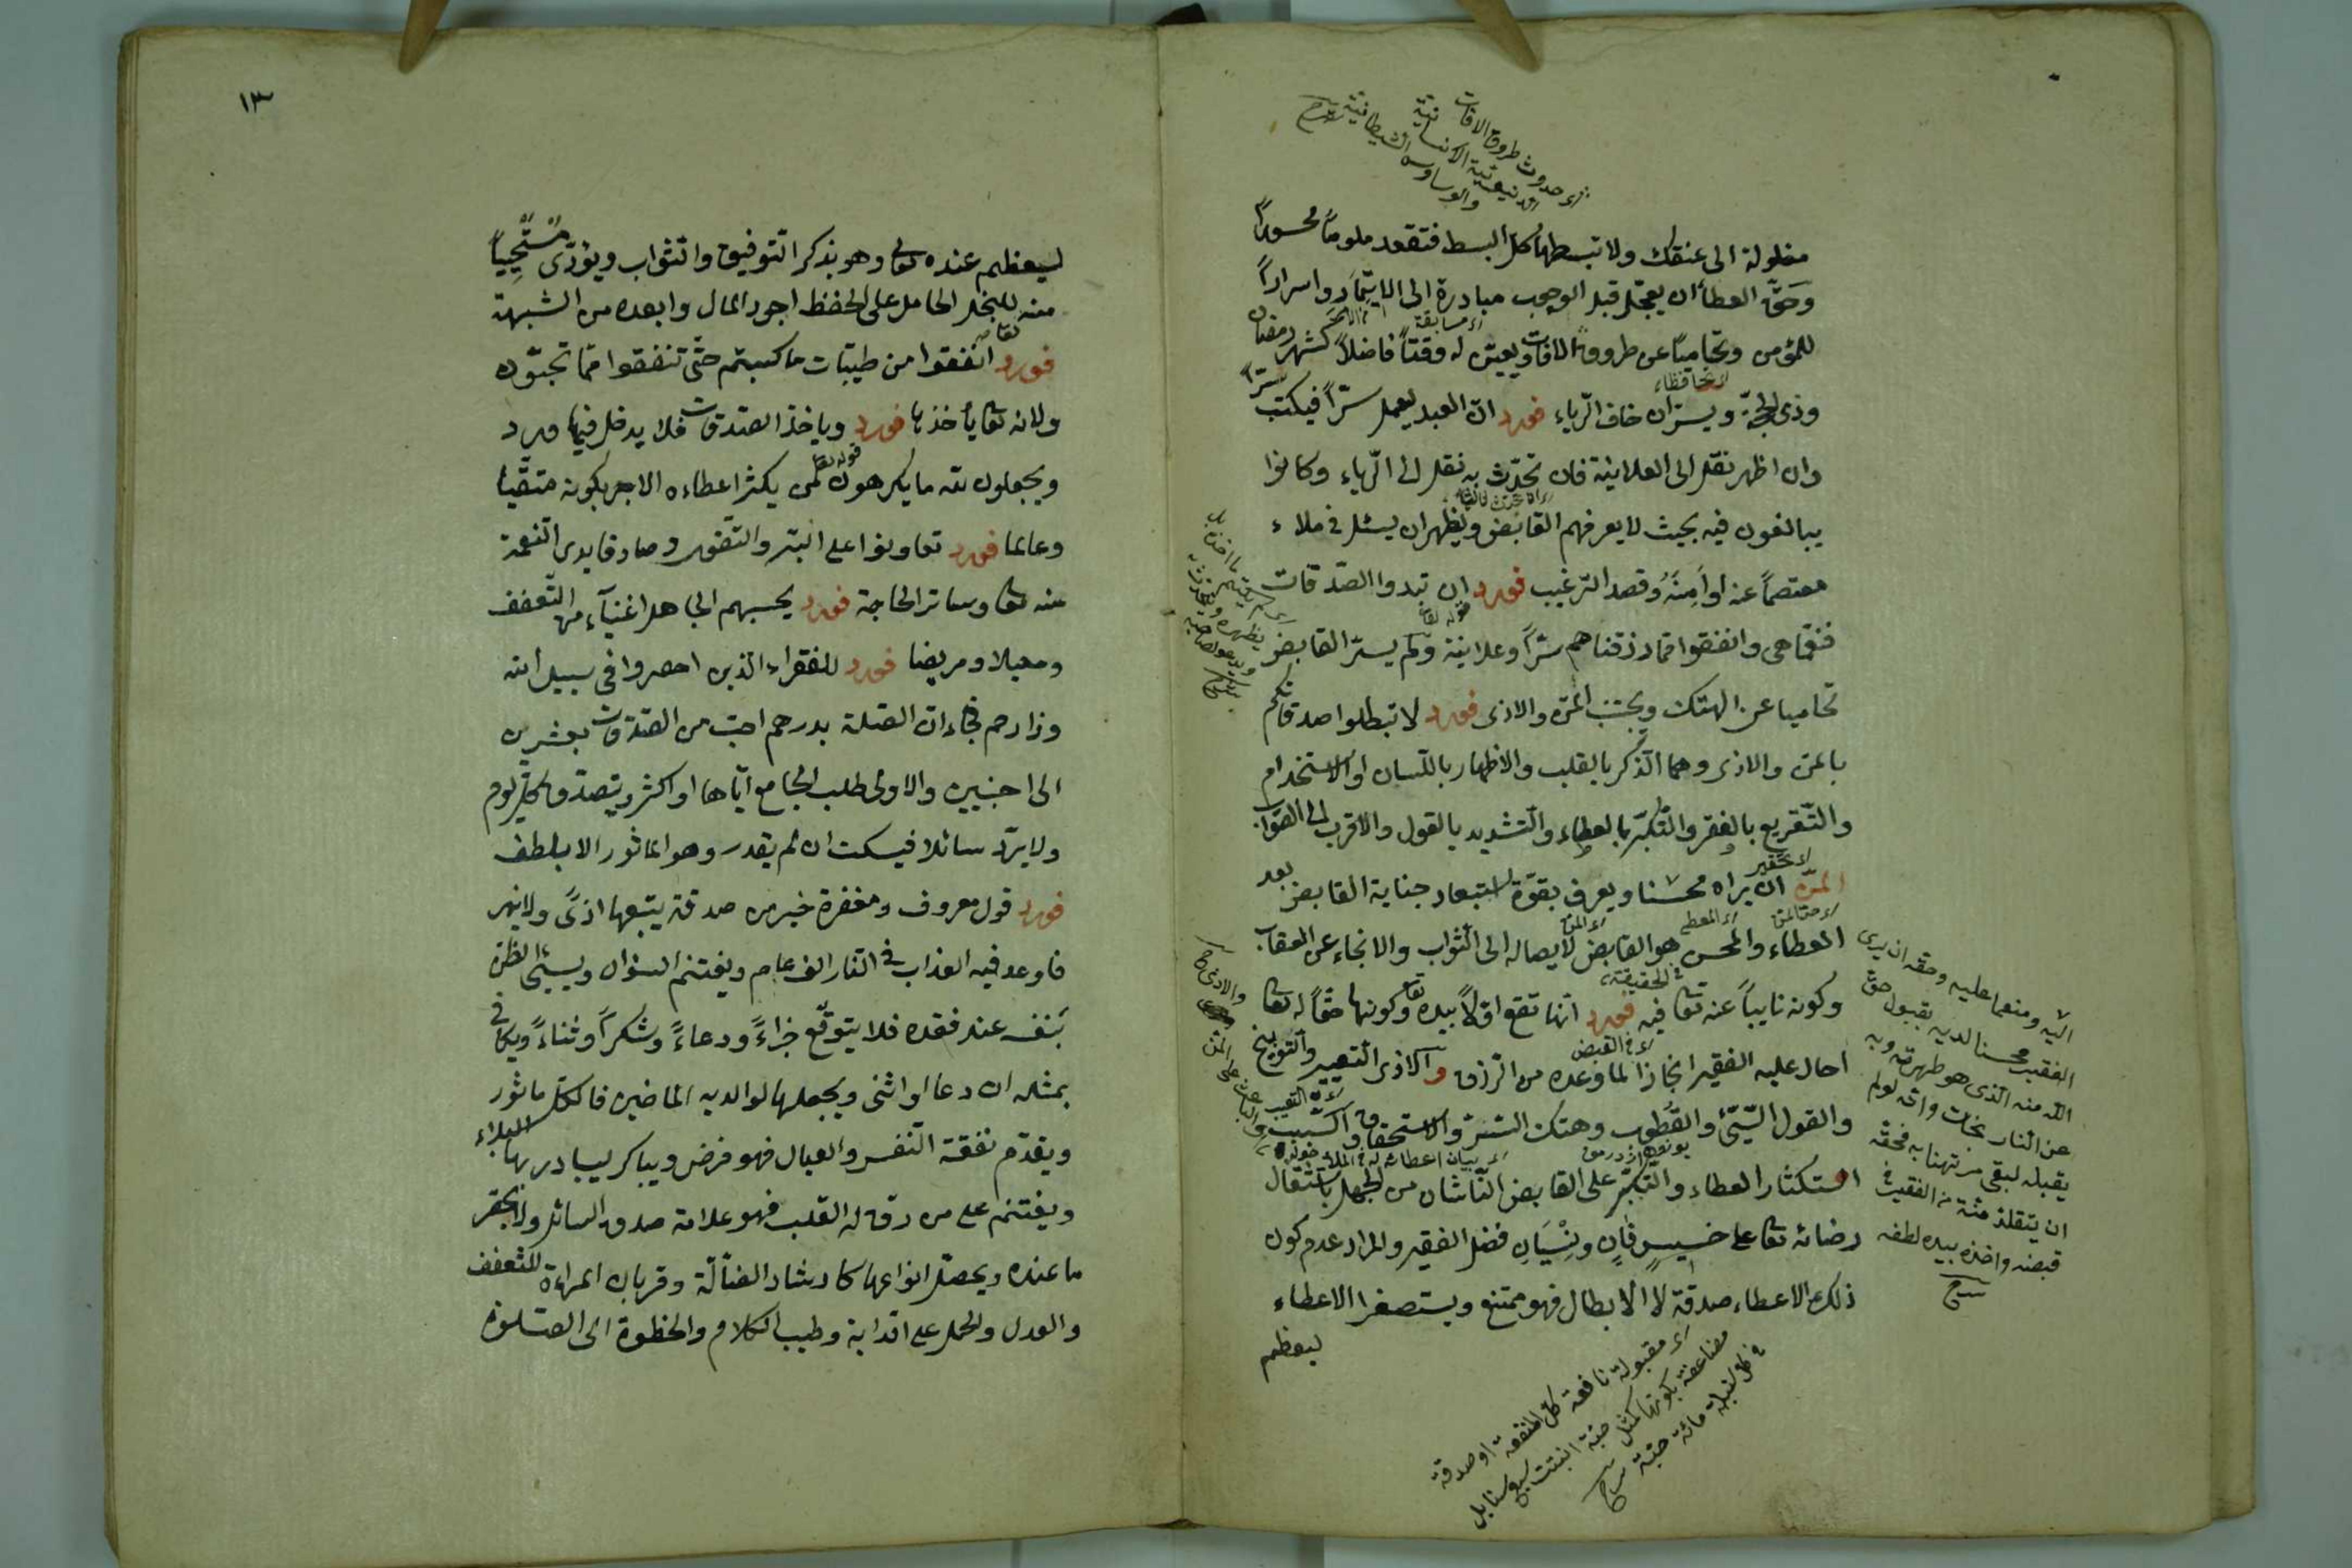 مغلولة الى عنقك ولا تبسطها كل البسط فتقعد ملوماً محسوراً
وحقّ العطاء ان يعجّل قبل الوجوب مبادرة الى الايتمار واسراراً
للمؤمن وتحامياً عن طروق الافات ويعيّن له وقتاً فاضلاً كشهر رمضان
وذى الحجّة ويسرّ ان خاف الرّياء فورد انّ العبد ليعمل سرّاً فيكتب سرّاً
وان اظهر نقل الى العلانية فان تحدّث به نقل الى الرّياء وكانوا
يبالغون فيه بحيث لا يعرفهم القابض ويظهر ان يسئل فى ملاء
معتصماً عنه او امنه وقصد الترغيب فورد ان تبدوا الصّدقات
فنعمّا هى وانفقوا ممّا رزقناهم سرّاً وعلانية ولم يسرّ القابض
تحاميا عن الهتك ويجتنب المنّ والاذى فورد لا تبطلوا صدقاتكم
بالمن والاذى وهما الذّكر بالقلب والاظهار باللّسان او الاستخدام
والتّقريع بالفقر والتّكبّر بالعطاء والتّشديد بالقول والاقرب الى الصّواب
المنّ ان يراه محسنا ويعرف بقوّة استبعاد جناية القابض بعد
العطاء والمحسن هو القابض لايصاله الى الثواب والانجاء عن العقاب
وكونه نايباً عنه تعا فيه فورد انّها تقع اوّلاً بيده تعا وكونها حقّاً له تعا
احال عليه الفقير انجازا لما وعده من الرّزق والاذى التعيير والتّوبيخ
والقول السّيّئ والقطوب وهتك السّتر والاستحقاق والسّبب
استكثار العطاء والتّكبّر على القابض النّاشئان من الجهل باستثقال
رضائه تعا على خسيس فانٍ ونسيان فضل الفقير والمراد عدم كون
ذلك الاعطاء صدقة لا الابطال فهو ممتنع ويستصغر الاعطاء
ليعظم
اى حدوث طروق الافات
والوساوس الشيطانية شرح
اليه ومنعما عليه وحقه ان يرى
الفقير محسنا لديه بقبول حق
الله منه الذى هو طهرته وبه
عن النار نجات وانه لو لم
يقبله لبقى مرتهنا به فحقه
ان يتقلد منّة الفقير فى
قبضه واخذه بيده لطفه
شرح
اى مقبولة نافعة كل المنفعة او صدقة
مضاعفة بكونها كمثل حبّة انبتت سبع سنابل
فى كل سنبلة مائة حبّة شرح
١٣
ليعظم عنده تعا وهو بذكر التّوفيق والثّواب ويؤدّى مستحيياً
منه للبخل الحامل على الحفظ اجود المال وابعده من الشبهة
فورد انفقوا من طيّبات ما كسبتم حتّى تنفقوا ممّا تحبّون
ولانه تعا يأخذها فورد وياخذ الصّدقات فلا يدخل فيها ورد
ويجعلون لله ما يكرهون لمن يكثر اعطاءه الاجر بكونه متقّيا
وعالما فورد تعاونوا على البّر والتّقوى وصادقا يرى النّعمة
منه تعا وساتر الحاجة فورد يحسبهم الجاهل اغنيآء من التّعفف
ومعيلا ومريضا فورد للفقراء الّذين احصروا فى سبيل الله
وذا رحم فجاء انّ الصّلة بدرهم احبّ من الصّدقات بعشرين
الى اجنبيين والاولى طلب الجامع ايّاها او اكثر ويتصدّق كلّ يوم
ولا يردّ سائلا فيسكت ان لم يقدر وهو الماثور الا بلطف
فورد قول معروف ومغفرة خير من صدقة يتبعها اذىً ولا ينهر
فاوعد فيه العذاب فى النّار الف عام ويغتنم السّؤال ويسيئ الظنّ
بنفسه عند فقده فلا يتوقّع جزاءً ودعاءً وشكراً وثناءً ويكافى
بمثله ان دعا او اثنى ويجعلها لوالديه الماضين فالكلّ ماثور
ويقدّم نفقة النّفس والعيال فهو فرض ويباكر ليبادر بها البلاء
ويغتنم على من رقّ له القلب فهو علامة صدق السائل ولا يحقر
ما عنده ويحصّل انواعها كارشاد الضّآلّة وقربان المراءة للتّعفف
والعدل والحمل على الدابة وطيب الكلام والخطوة الى الصّلوة